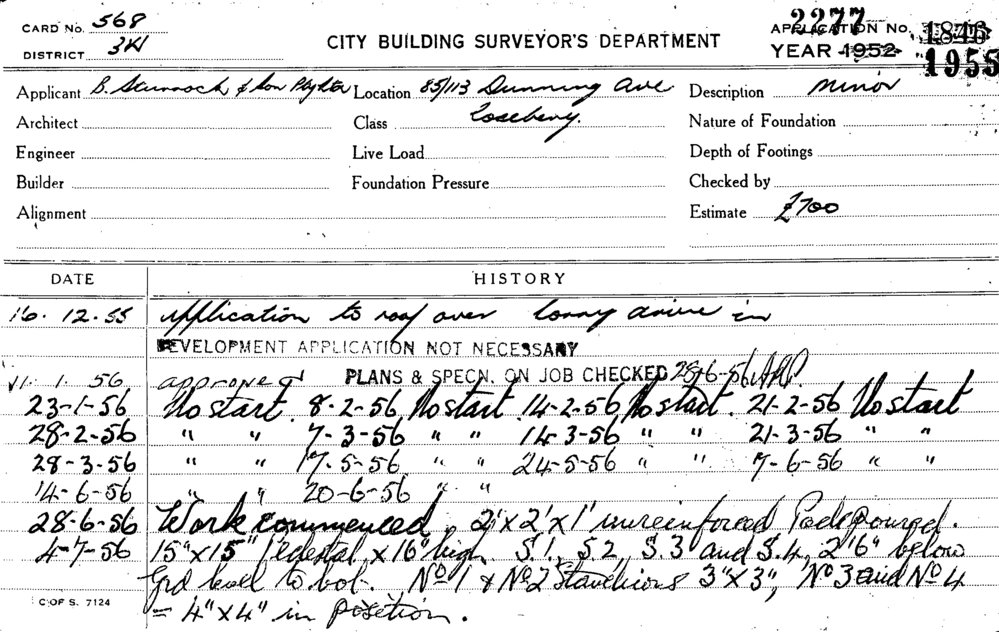 CARD No. 568
DISTRICT 3H
CITY BUILDING SURVEYOR'S DEPARTMENT
2277
APPLICATION No. 1846
YEAR 1952 1955
Applicant B. & Son Pty Ltd Location 85/113 Dunning Ave Description minor
Architect Class Rosebery. Nature of Foundation
Engineer Live Load Depth of Footings
Builder Foundation Pressure Checked by
Alignment Estimate £700
DATE HISTORY
16. 12. 55 Application to roof over lorry drive in
DEVELOPMENT APPLICATION NOT NECESSARY
11. 1. 56 approved PLANS & SPECN. ON JOB CHECKED 28-6-56
23-1-56 No start. 8-2-56 No start 14-2-56 No start. 21-2-56 No start
28-2-56 " " 7-3-56 " " 14-3-56 " " 21-3-56 " "
28-3-56 " " 17-5-56 " " 24-5-56 " " 7-6-56 " "
14-6-56 " " 20-6-56 " "
28-6-56 Work commenced, 2'x2'x1' unreinforced Pads poured.
4-7-56 15"x15" Pedestal, x16" high S.1, S.2, S.3 and S.4, 2'6" below
Grd level to bot. No 1 & No 2 Stanchions 3"x3", No 3 and No 4
= 4"x4" in position.
C OF S. 7124